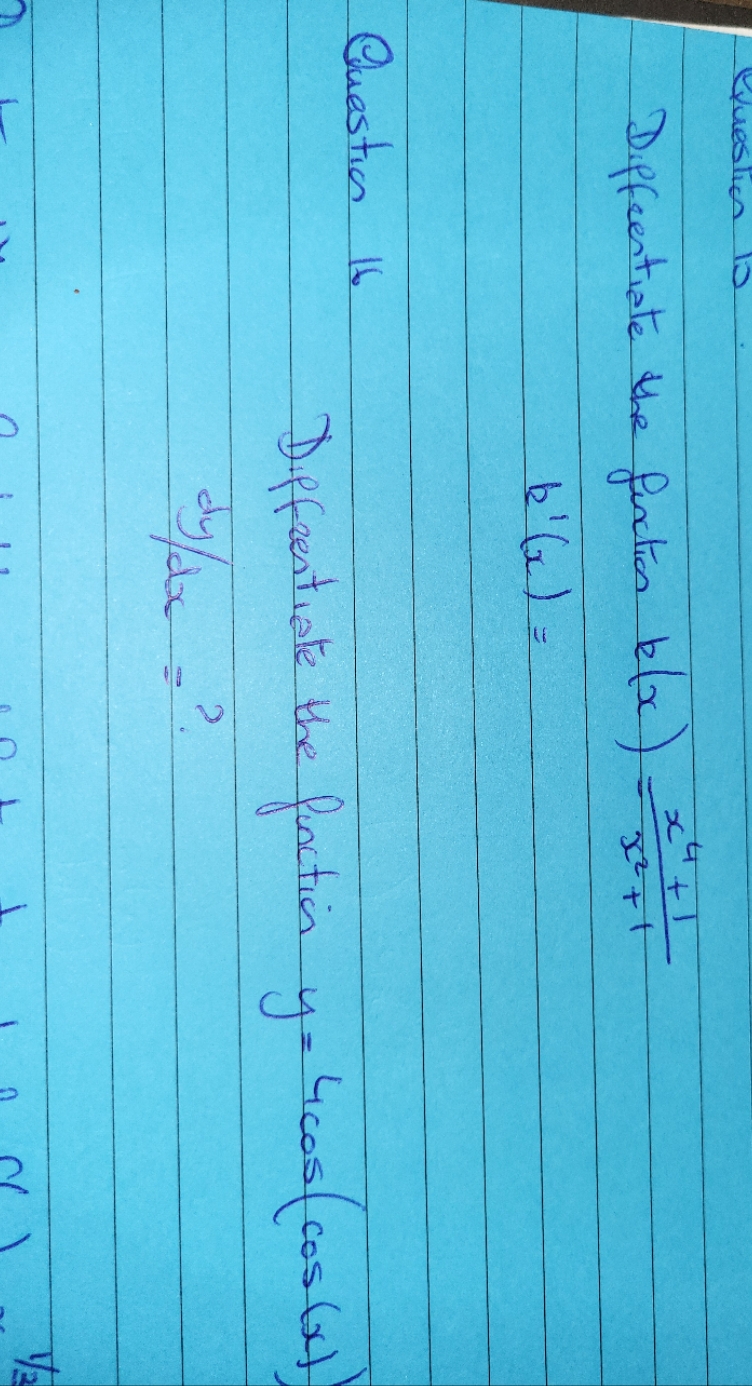 Question 15
Differentiate the function k(x) = x⁴ + 1 / x² + 1
k'(x) =
Question 16
Differentiate the function y = 4cos(cos(x))
dy/dx = ?